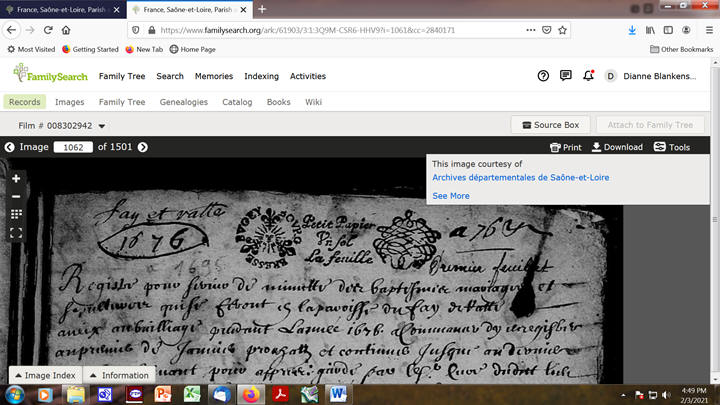 France, Saône-et-Loire, Parish a
France, Saône-et-Loire, Parish a
https://www.familysearch.org/ark:/61903/3:1:3Q9M-CSR6-HHV9?i=1061&cc=2840171
Most Visited
Getting Started
New Tab
Home Page
Other Bookmarks
FamilySearch
Family Tree
Search
Memories
Indexing
Activities
D
Dianne Blankens...
Records
Images
Family Tree
Genealogies
Catalog
Books
Wiki
Film # 008302942
Source Box
Attach to Family Tree
Image 1062 of 1501
Print
Download
Tools
This image courtesy of
Archives départementales de Saône-et-Loire
See More
fay et vatte
1676
a 1695
BVGEY BOVRG BRESSE
Petit Papier
Vn sol
La feuille
a 762
Premier feuillet
Registre pour servir de minutte des baptismes mariages et
quise feront en la paroisse du fay
au bailliage pendant Lannée 1676. a Commancer du
de Janvier prochain et continuer Jusque au dernier
Image Index
Information
4:49 PM
2/3/2021